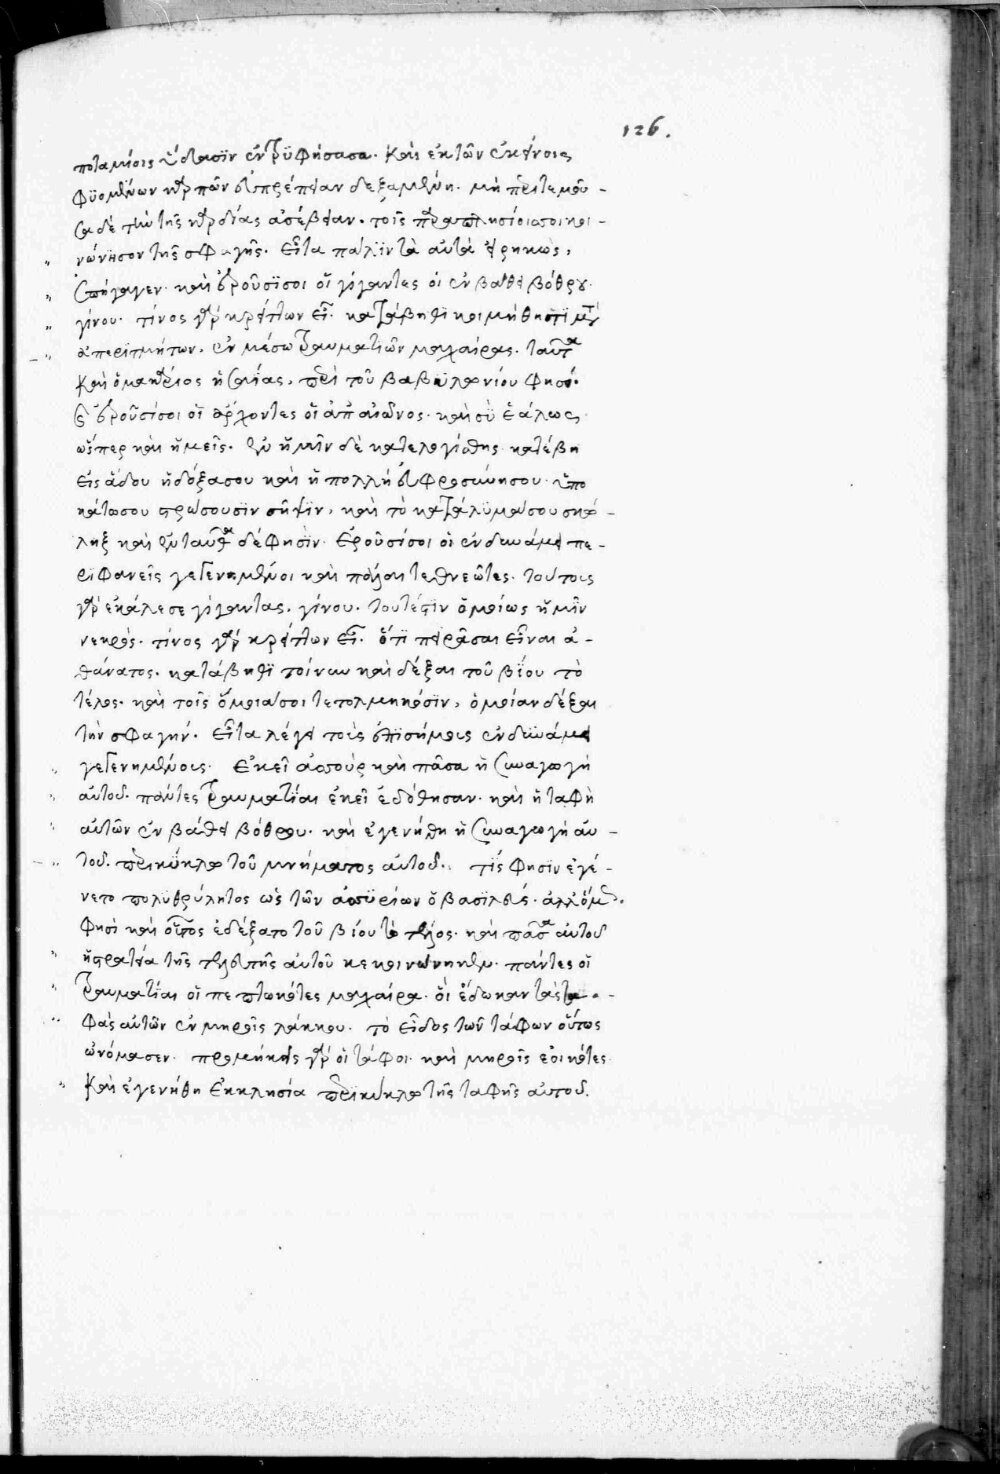 126.
ποταμίοις ὕδασϊν ἐντρϋφήσασα. Καὶ ἐκ τῶν ἐκείνοις
φϋομένων καρπῶν εὐπρέπειαν δεξαμένη. μὴ περιτεμοῦ -
σα δὲ τὴν τῆς καρδίας ἀσέβειαν. τοῖς παραπλησίοις κοι -
νώνησον τῆς σφαγῆς. Εἶτα πάλϊν τὰ αὐτὰ εἰρηκὼς,
ἐπήγαγεν. καὶ ἐροῦσϊ σοι οἵ γίγαντες οἱ ἐν βάθει βόθρου.
γίνου. τίνος γὰρ κρείττων εἶ. κατάβηθι κοιμήθητι μετὰ
ἀπεριτμήτων. ἐν μέσω τραυματιῶν μαχαίρας. ταῦτα
Καὶ ὁ μακάριος ἡσαΐας, περὶ τοῦ βαβυλωνίου φησί.
ἐροῦσί σοι οἵ ἄρχοντες οἵ ἀπ αἰῶνος. καὶ σὺ ἑάλως
ὥσπερ καὶ ἡμεῖς. ἐν ἡμῖν δὲ κατελογίσθης κατέβη
εἰς ἅδου ἡ δόξα σου καὶ ἡ πολλή εὐφροσύνη σου. ὑπο
κάτω σου στρώσουσιν σῆψϊν, καὶ τὸ κατάλϋμά σου σκώ -
ληξ καὶ ἐνταῦθα δέ φησϊν. Ἐροῦσί σοι οἱ ἐν δυνάμει πε -
ρϊφανεῖς γεγενημένοι καὶ πάλαι τεθνεῶτες. τούτους
γὰρ ἐκάλεσε γίγαντας. γίνου. τουτέστϊν ὁμοίως ἡμῖν
νεκρὸς. τίνος γὰρ κρείττων εἶ. ὅτϊ πειρᾶσαι εἶναι ἀ -
θάνατος. κατάβηθϊ τοίνυν καὶ δέξαι τοῦ βίου τὸ
τέλος. καὶ τοῖς ὅμοιά σοι τετολμηκόσϊν, ὁμοίαν δέξαι
τὴν σφαγήν. Εἶτα λέγει τοὺς ἐπϊσήμους ἐν δυνάμει
γεγενημένους. Ἐκεῖ ἀσσοὺρ καὶ πᾶσα ἡ συναγωγὴ
αὐτοῦ. πάντες τραυματίαι ἐκεῖ ἐδόθησαν. καὶ ἡ ταφὴ
αὐτῶν ἐν βάθει βόθρου. καὶ ἐγενήθη ἡ συναγωγὴ αὐ -
τοῦ. περικύκλω τοῦ μνήματος αὐτοῦ. τίς φησϊν ἐγέ -
νετο πολϋθρύλητος ὡς τῶν ἀσσϋρίων ὁ βασϊλεύς. ἀλλ ὅμως.
φησὶ καὶ οὗτος ἐδέξατο τοῦ βίου τὸ τέλος. καὶ πᾶσα αὐτοῦ
ἡ στρατεία τῆς τελευτῆς αὐτοῦ κεκοινώνηκεν. πάντες οἱ
τραυματίαι οἱ πεπτωκότες μαχαίρα. οἱ ἔδωκαν τὰς τα -
φὰς αὐτῶν ἐν μηροῖς λάκκου. τὸ εἶδος τῶν τάφων οὕτως
ὠνόμασεν. προμήκεις γὰρ οἱ τάφοι. καὶ μηροῖς ἐοικότες.
Καὶ ἐγενήθη ἐκκλησία περικύκλω τῆς ταφῆς αὐτοῦ.